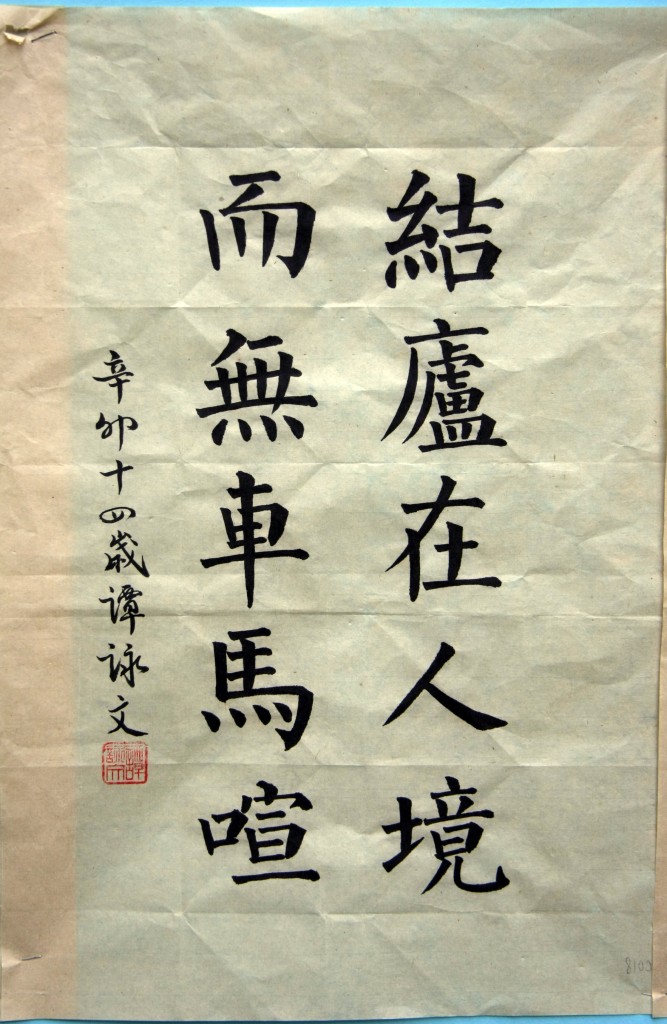 結廬在人境
而無車馬喧
辛卯十四歲譚詠文